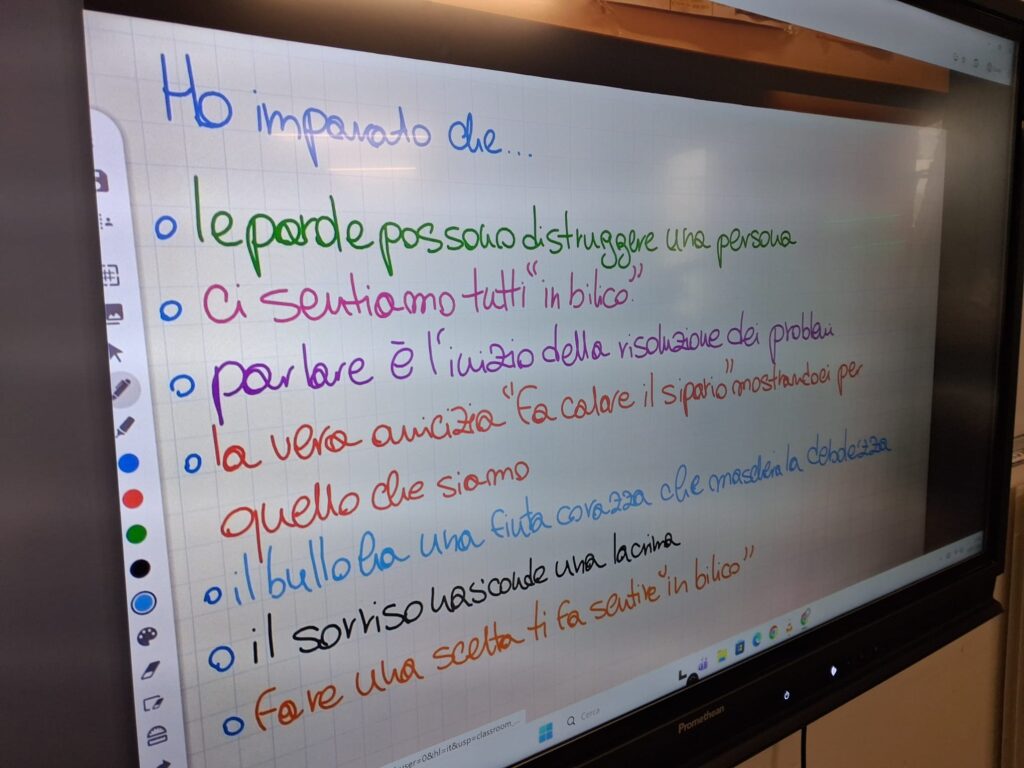 Ho imparato che...
le parole possono distruggere una persona
ci sentiamo tutti "in bilico".
parlare è l'inizio della risoluzione dei problemi
la vera amicizia "fa calare il sipario" mostrandoci per
quello che siamo
il bullo ha una finta corazza che maschera la debolezza
il sorriso nasconde una lacrima
fare una scelta ti fa sentire "in bilico"
user=0&hl=it&usp=classroom_...
Cerca
Promethean